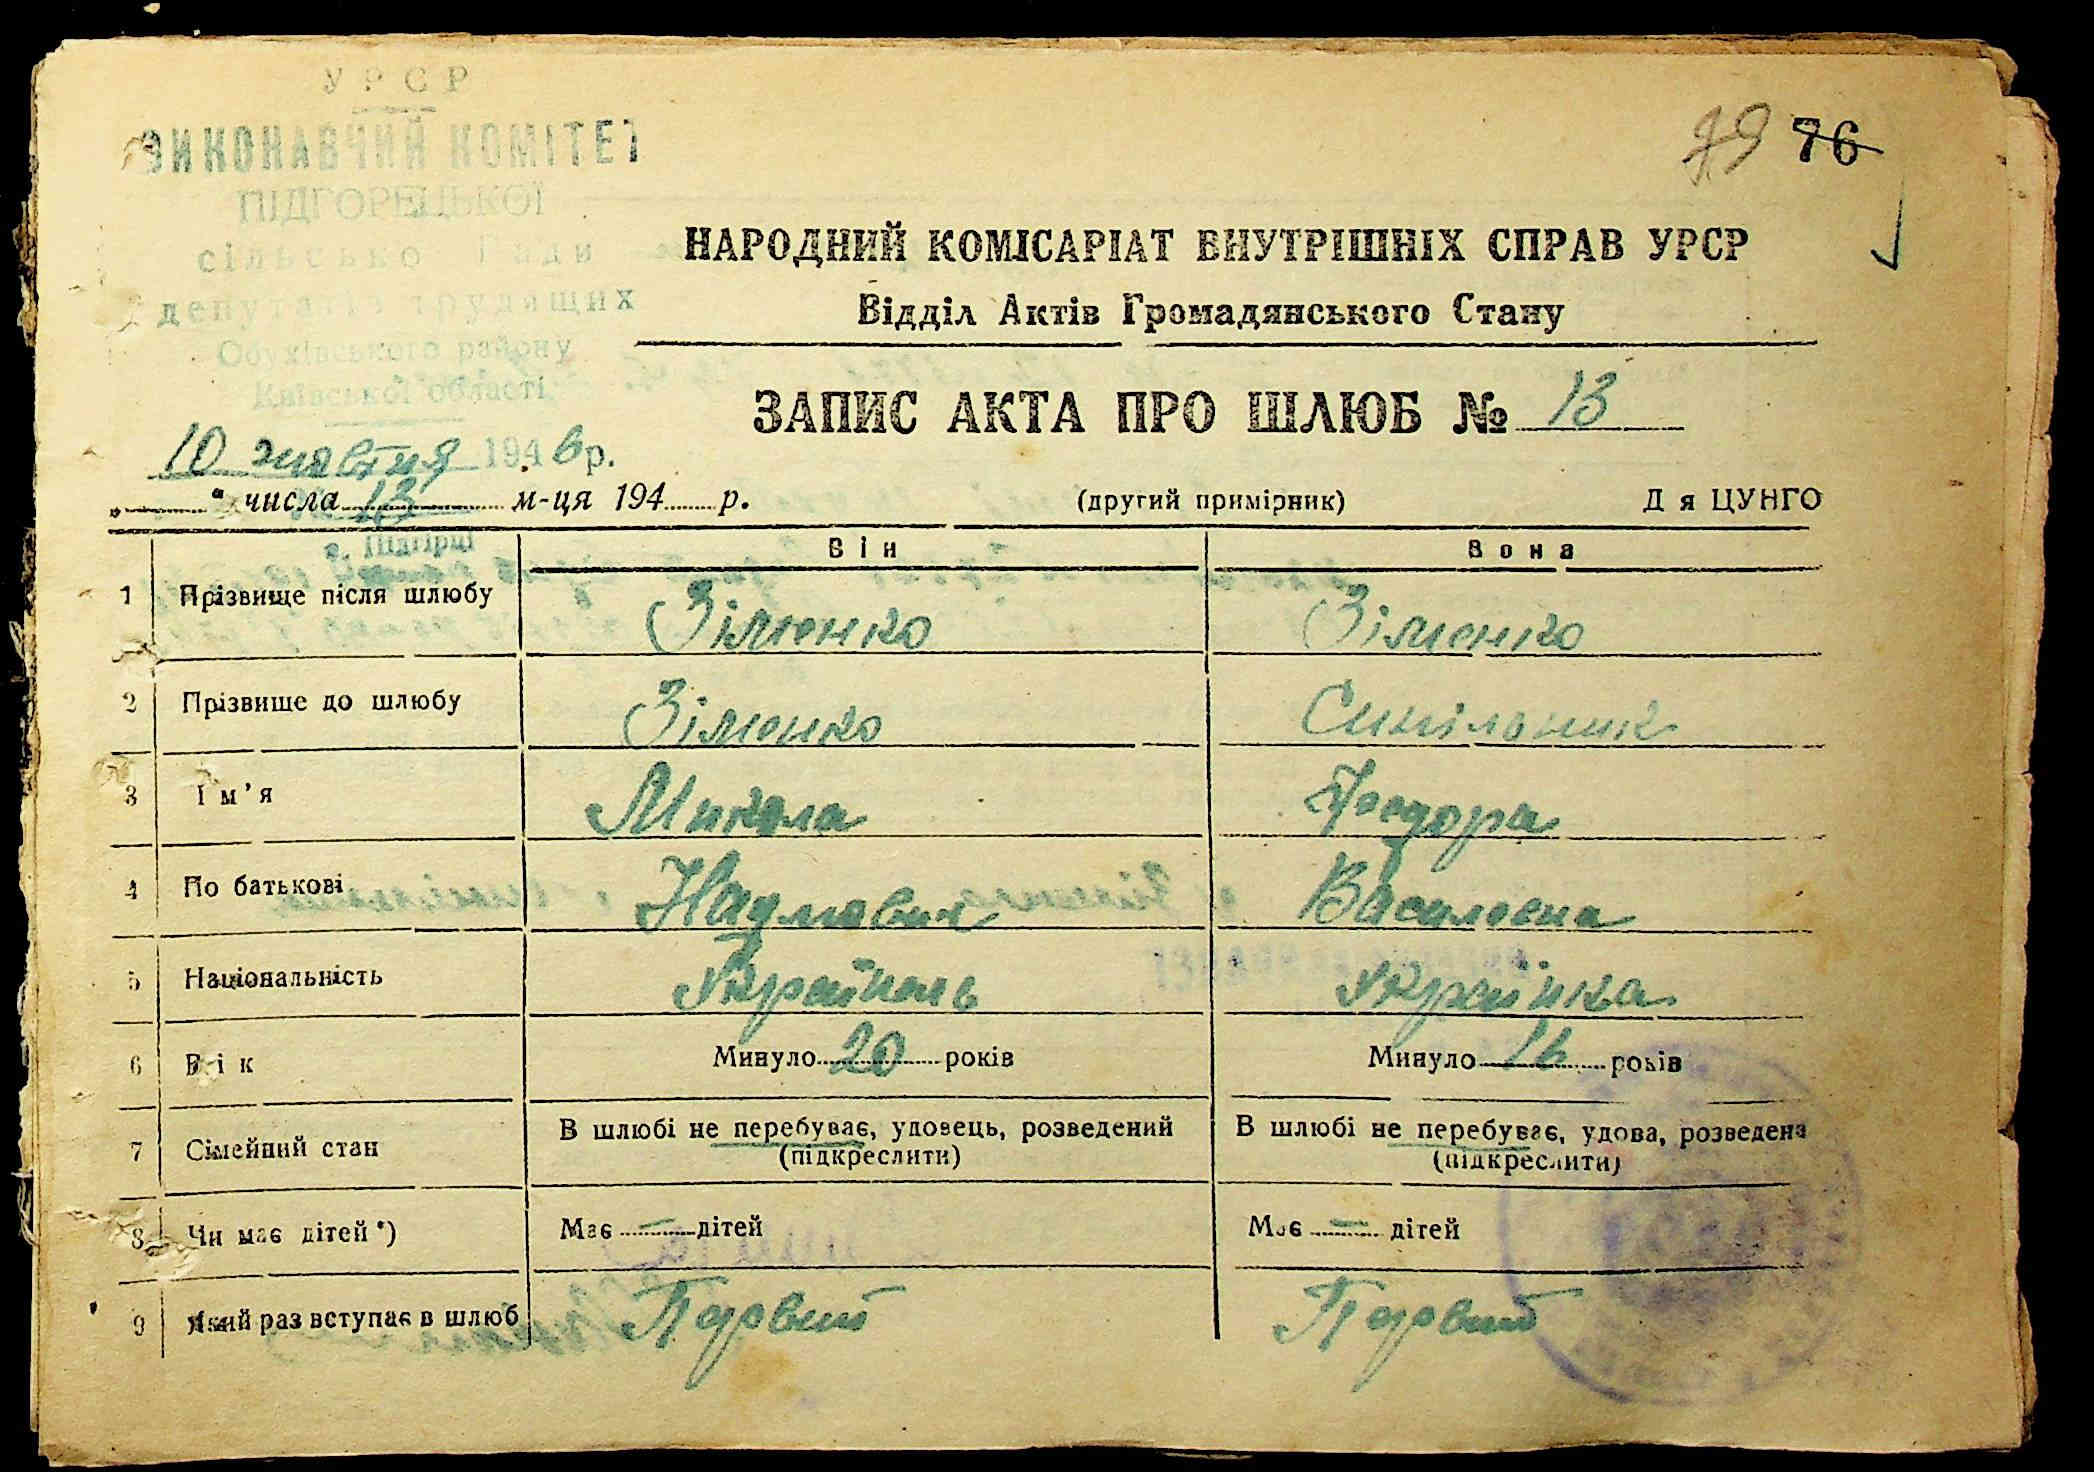 УРСР
ВИКОНАВЧИЙ КОМІТЕТ
ПІДГОРЕЦЬКОЇ
сільсько Ради
депутатів трудящих
Обухівського району
Київської області
10 жовтня 1946 р.
с. Підгірці
79 76
НАРОДНИЙ КОМІСАРІАТ ВНУТРІШНІХ СПРАВ УРСР
Відділ Актів Громадянського Стану
ЗАПИС АКТА ПРО ШЛЮБ № 13
" числа 13 м-ця 194 р. (другий примірник) Д я ЦУНГО
Він Вона
1 Прізвище після шлюбу Зіменко Зіменко
2 Прізвище до шлюбу Зіменко
3 Ім'я Микола Теодора
4 По батькові Наумович Василевна
5 Національність Українець Українка
6 Вік Минуло 20 років Минуло 16 років
7 Сімейний стан В шлюбі не перебуває, удовець, розведений (підкреслити) В шлюбі не перебуває, удова, розведена (підкреслити)
8 Чи має дітей*) Має — дітей Має — дітей
9 Який раз вступає в шлюб Первий Первий